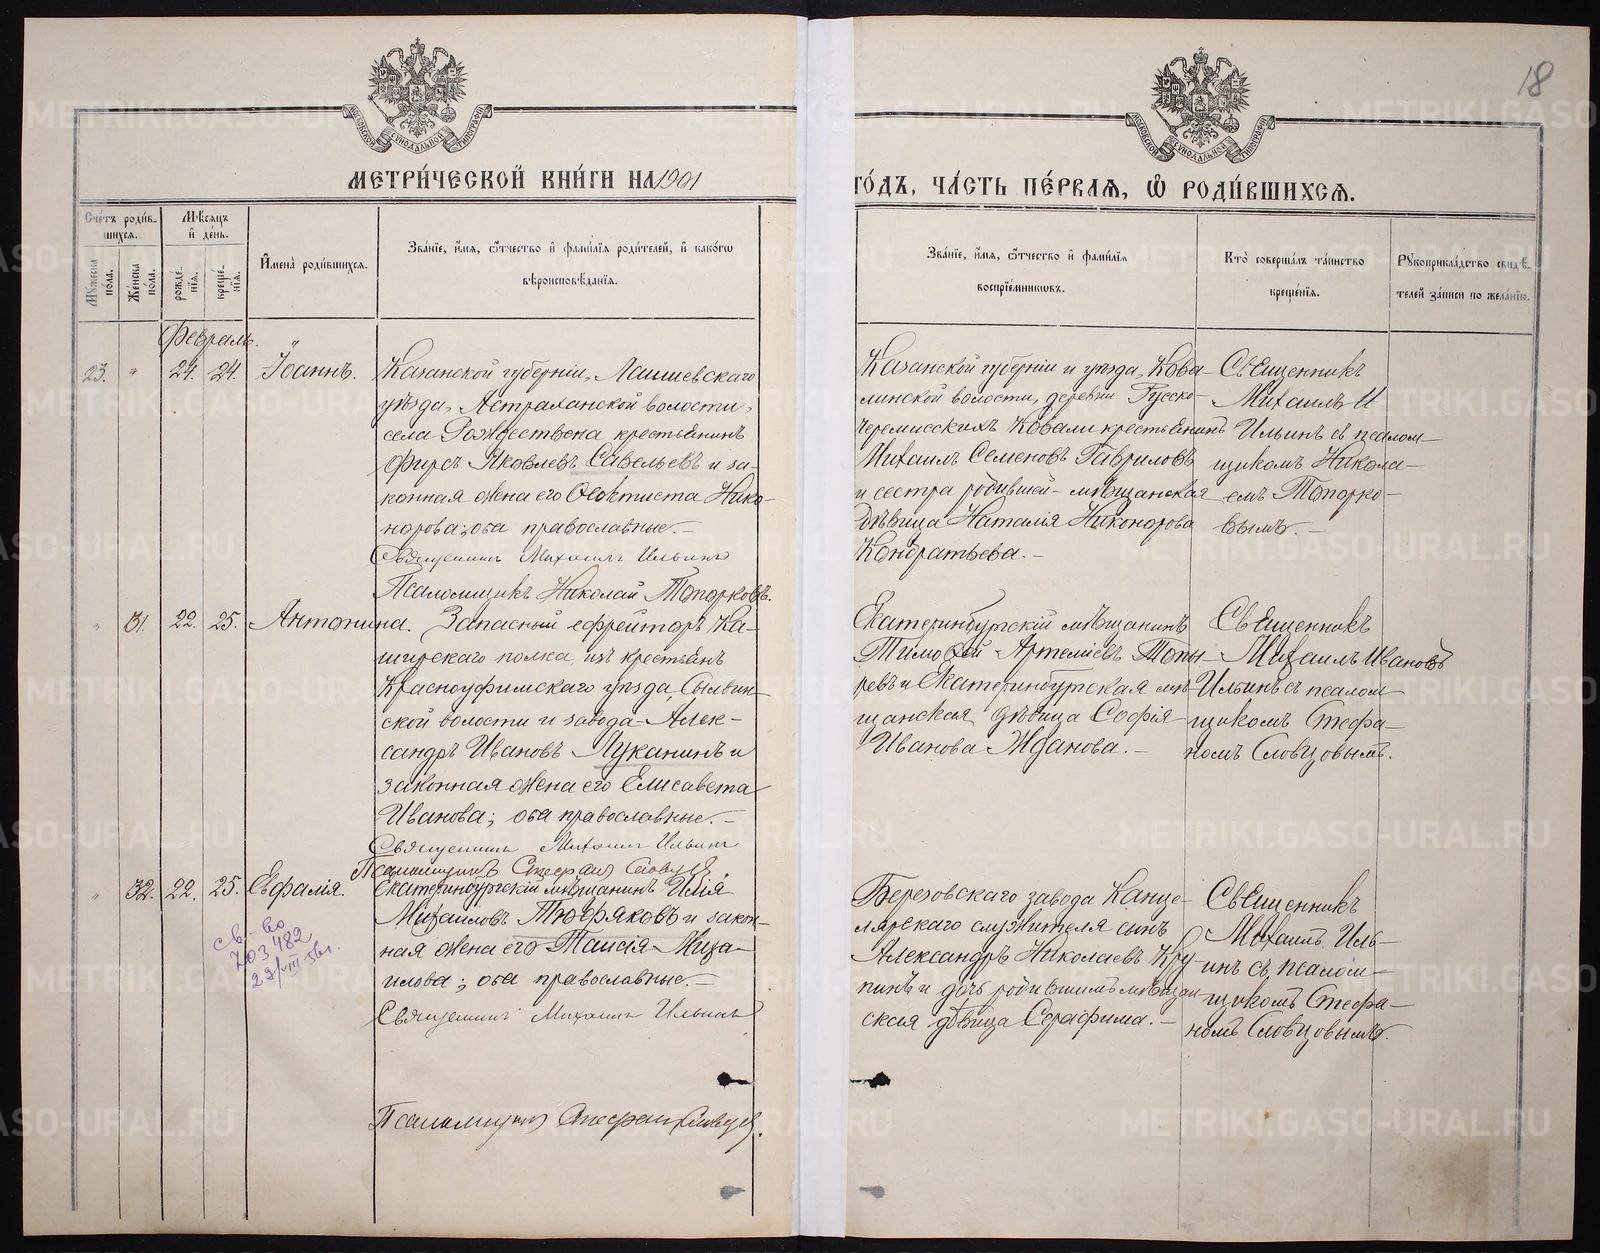 18
МЕТРИ́ЧЕСКОЙ КНИ́ГИ НА 1901
ГО́ДЪ, ЧА́СТЬ ПЕ́РВАЯ, Ѡ҆ РОДИ́ВШИХСЯ.
Сче́тъ роди́в-
шихся.
Мѣсяцъ
и҆ де́нь.
Мꙋжеска
по́ла.
Же́нска
по́ла.
рожде-
нїя.
креще-
нїя.
И҆мена̀ роди́вшихся.
Зва́нїе, и҆́мя, ѻ҆́тчество и҆ фами́лїя роди́телей, и҆ како́гѡ
вѣроисповѣ́данїя.
Зва́нїе, и҆́мя, ѻ҆́тчество и҆ фами́лїя
воспрїе́мникѡвъ.
Кто̀ соверша́лъ та́инство
креще́нїя.
Рꙋкоприкла́дство свидѣ́-
телей за́писи по жела́нїю.
Февраль.
23. " 24. 24. Іоаннъ.
Казанской губерніи, Лаишевскаго
уѣзда, Астраханской волости,
села Рождествена крестьянинъ
Фирсъ Яковлевъ Савельевъ и за-
конная жена его Ѳеоктиста Нико-
норова; оба православные.-
Священникъ Михаилъ Ильинъ
Псаломщикъ Николай Топорковъ.
Казанской губерніи и уѣзда, Кова-
линской волости, деревни Русско-
Черемисскихъ Ковали крестьянинъ
Михаилъ Семеновъ Гавриловъ
и сестра родившей - мѣщанская
дѣвица Наталія Никонорова
Кондратьева.-
Священникъ
Михаилъ И
Ильинъ съ псалом-
щикомъ Никола-
емъ Топорко-
вымъ.-
" 31. 22. 25. Антонина.
Запасный ефрейторъ Ка-
ширскаго полка, изъ крестьянъ
Красноуфимскаго уѣзда, Сылвин-
ской волости и завода Алек-
сандръ Ивановъ Луканинъ и
законная жена его Елисавета
Иванова; оба православные.-
Священникъ Михаилъ Ильинъ
Псаломщикъ Стефанъ Словцовъ.
Екатеринбургскій мѣщанинъ
Тимоѳей Артеміевъ Топы-
ревъ и Екатеринбургская мѣ-
щанская дѣвица Софія
Иванова Жданова.-
Священникъ
Михаилъ Ивановъ
Ильинъ съ псалом-
щикомъ Стефа-
номъ Словцовымъ.
" 32. 22. 25. Евфалія.
св-во
703482
23/VIII
Екатеринбургскій мѣщанинъ Илія
Михаиловъ Тюфяковъ и закон-
ная жена его Таисія Миха-
илова; оба православные.-
Священникъ Михаилъ Ильинъ
Псаломщикъ Стефанъ Словцовъ.
Березовскаго завода Канце-
лярскаго служителя сынъ
Александръ Николаевъ Кру-
пинъ и дочь родившимъ мѣщан-
ская дѣвица Серафима.-
Священникъ
Михаилъ Иль-
инъ съ псалом-
щикомъ Стефа-
номъ Словцовымъ.